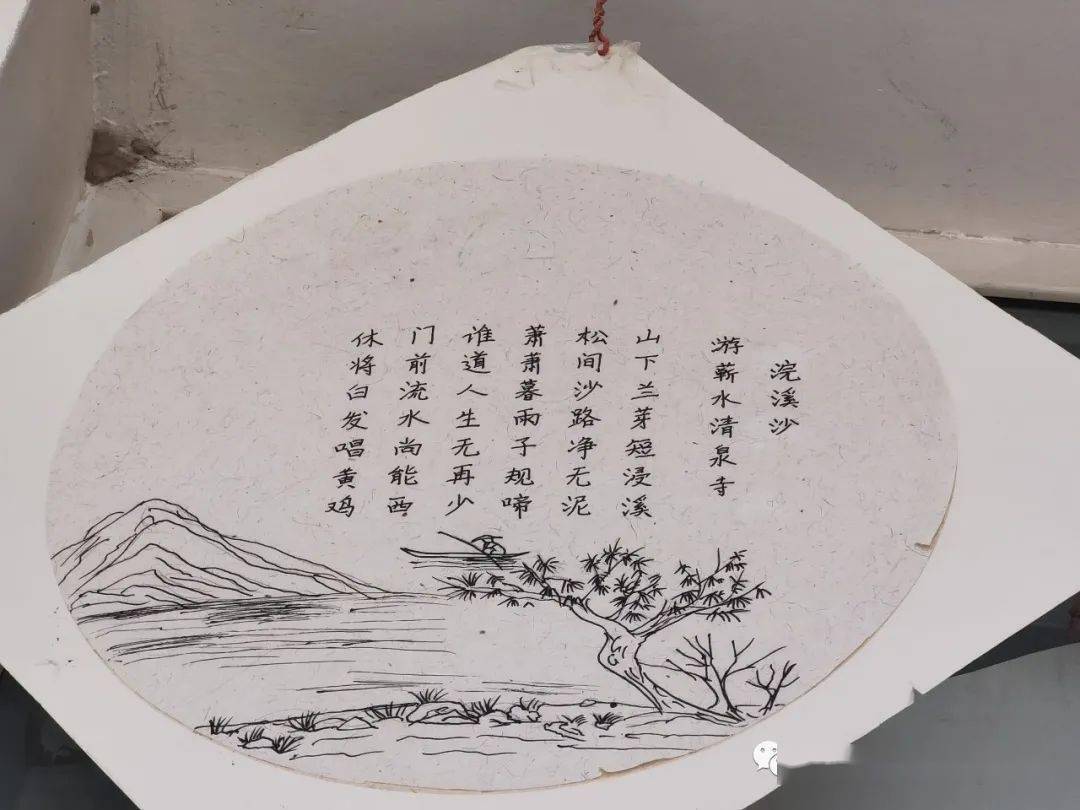 浣溪沙
游蕲水清泉寺
山下兰芽短浸溪
松间沙路净无泥
萧萧暮雨子规啼
谁道人生无再少
门前流水尚能西
休将白发唱黄鸡